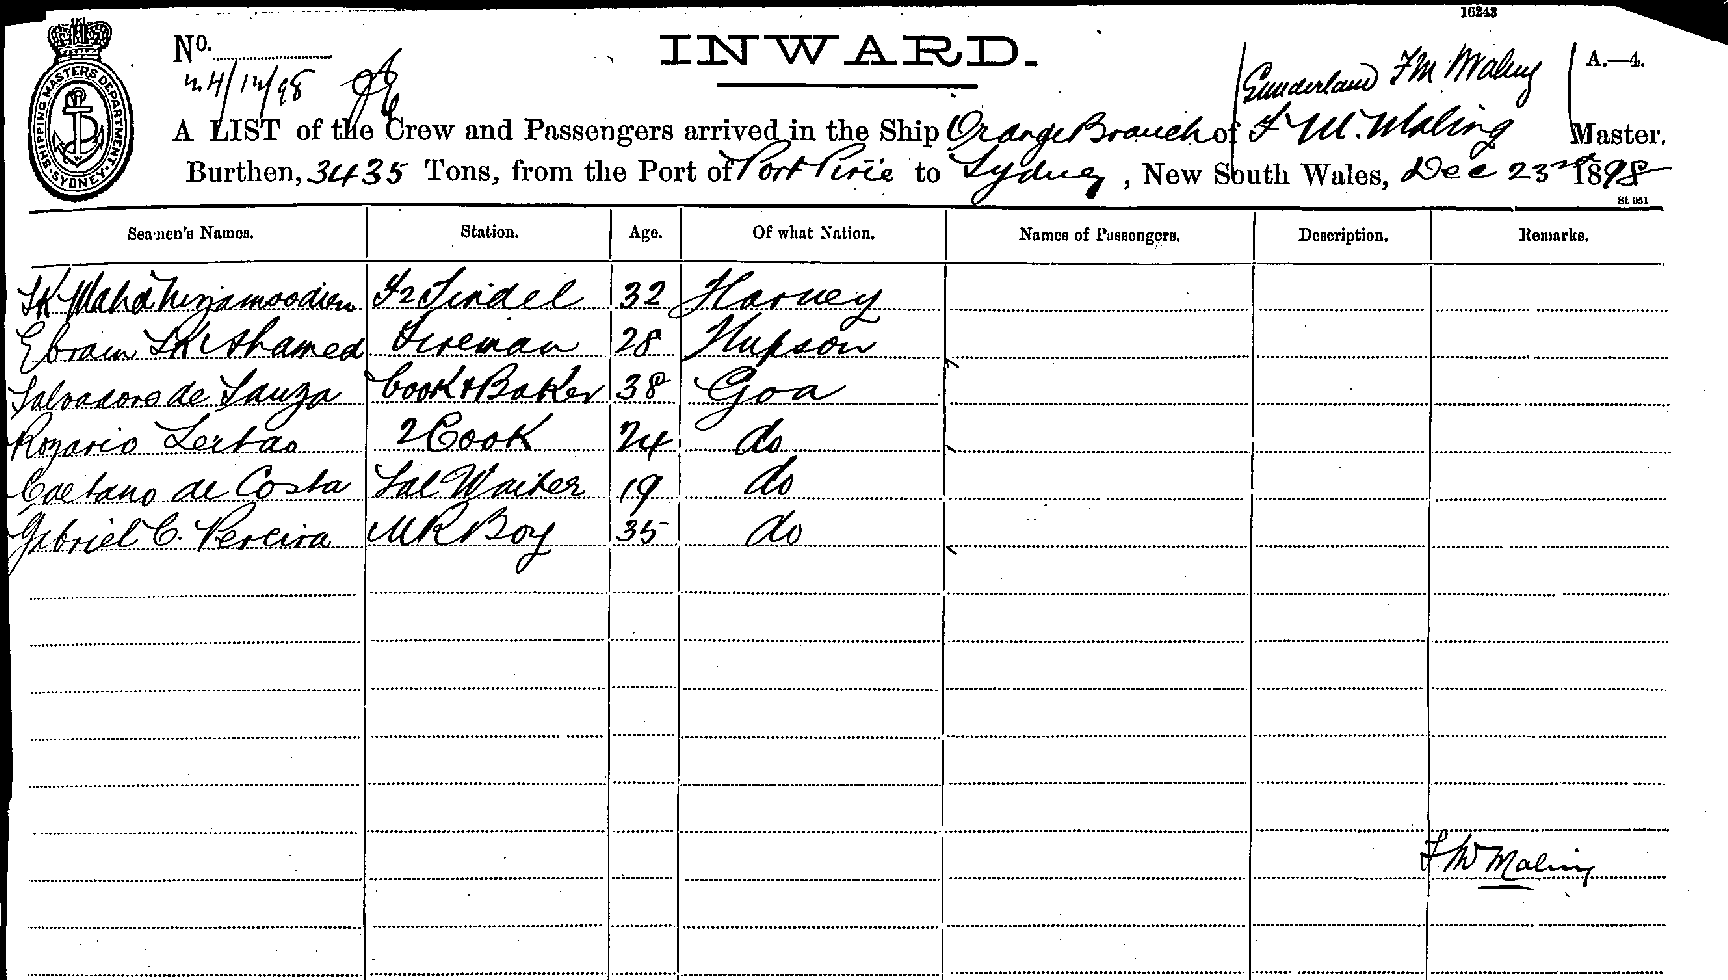 16243
INWARD.
No.
24/12/98
SHIPPING MASTERS DEPARTMENT
SYDNEY
Sunderland F M Maling
A.—4.
A LIST of the Crew and Passengers arrived in the Ship Orange Branch of F M. Maling Master.
Burthen, 3435 Tons, from the Port of Port Pirie to Sydney, New South Wales, Dec 23rd 1898
Seamen's Names. Station. Age. Of what Nation. Names of Passengers. Description. Remarks.
SK Mahd Nizamoodien F2 Tindel 32 Harney
Ebraim SK Ahamed Fireman 28 Hupson
Salvadore de Sauza Cook & Baker 38 Goa
Rozario Leitao 2 Cook 24 do
Caetano de Costa Sal Waiter 19 do
Gabriel C. Pereira MR Boy 35 do
F M Maling